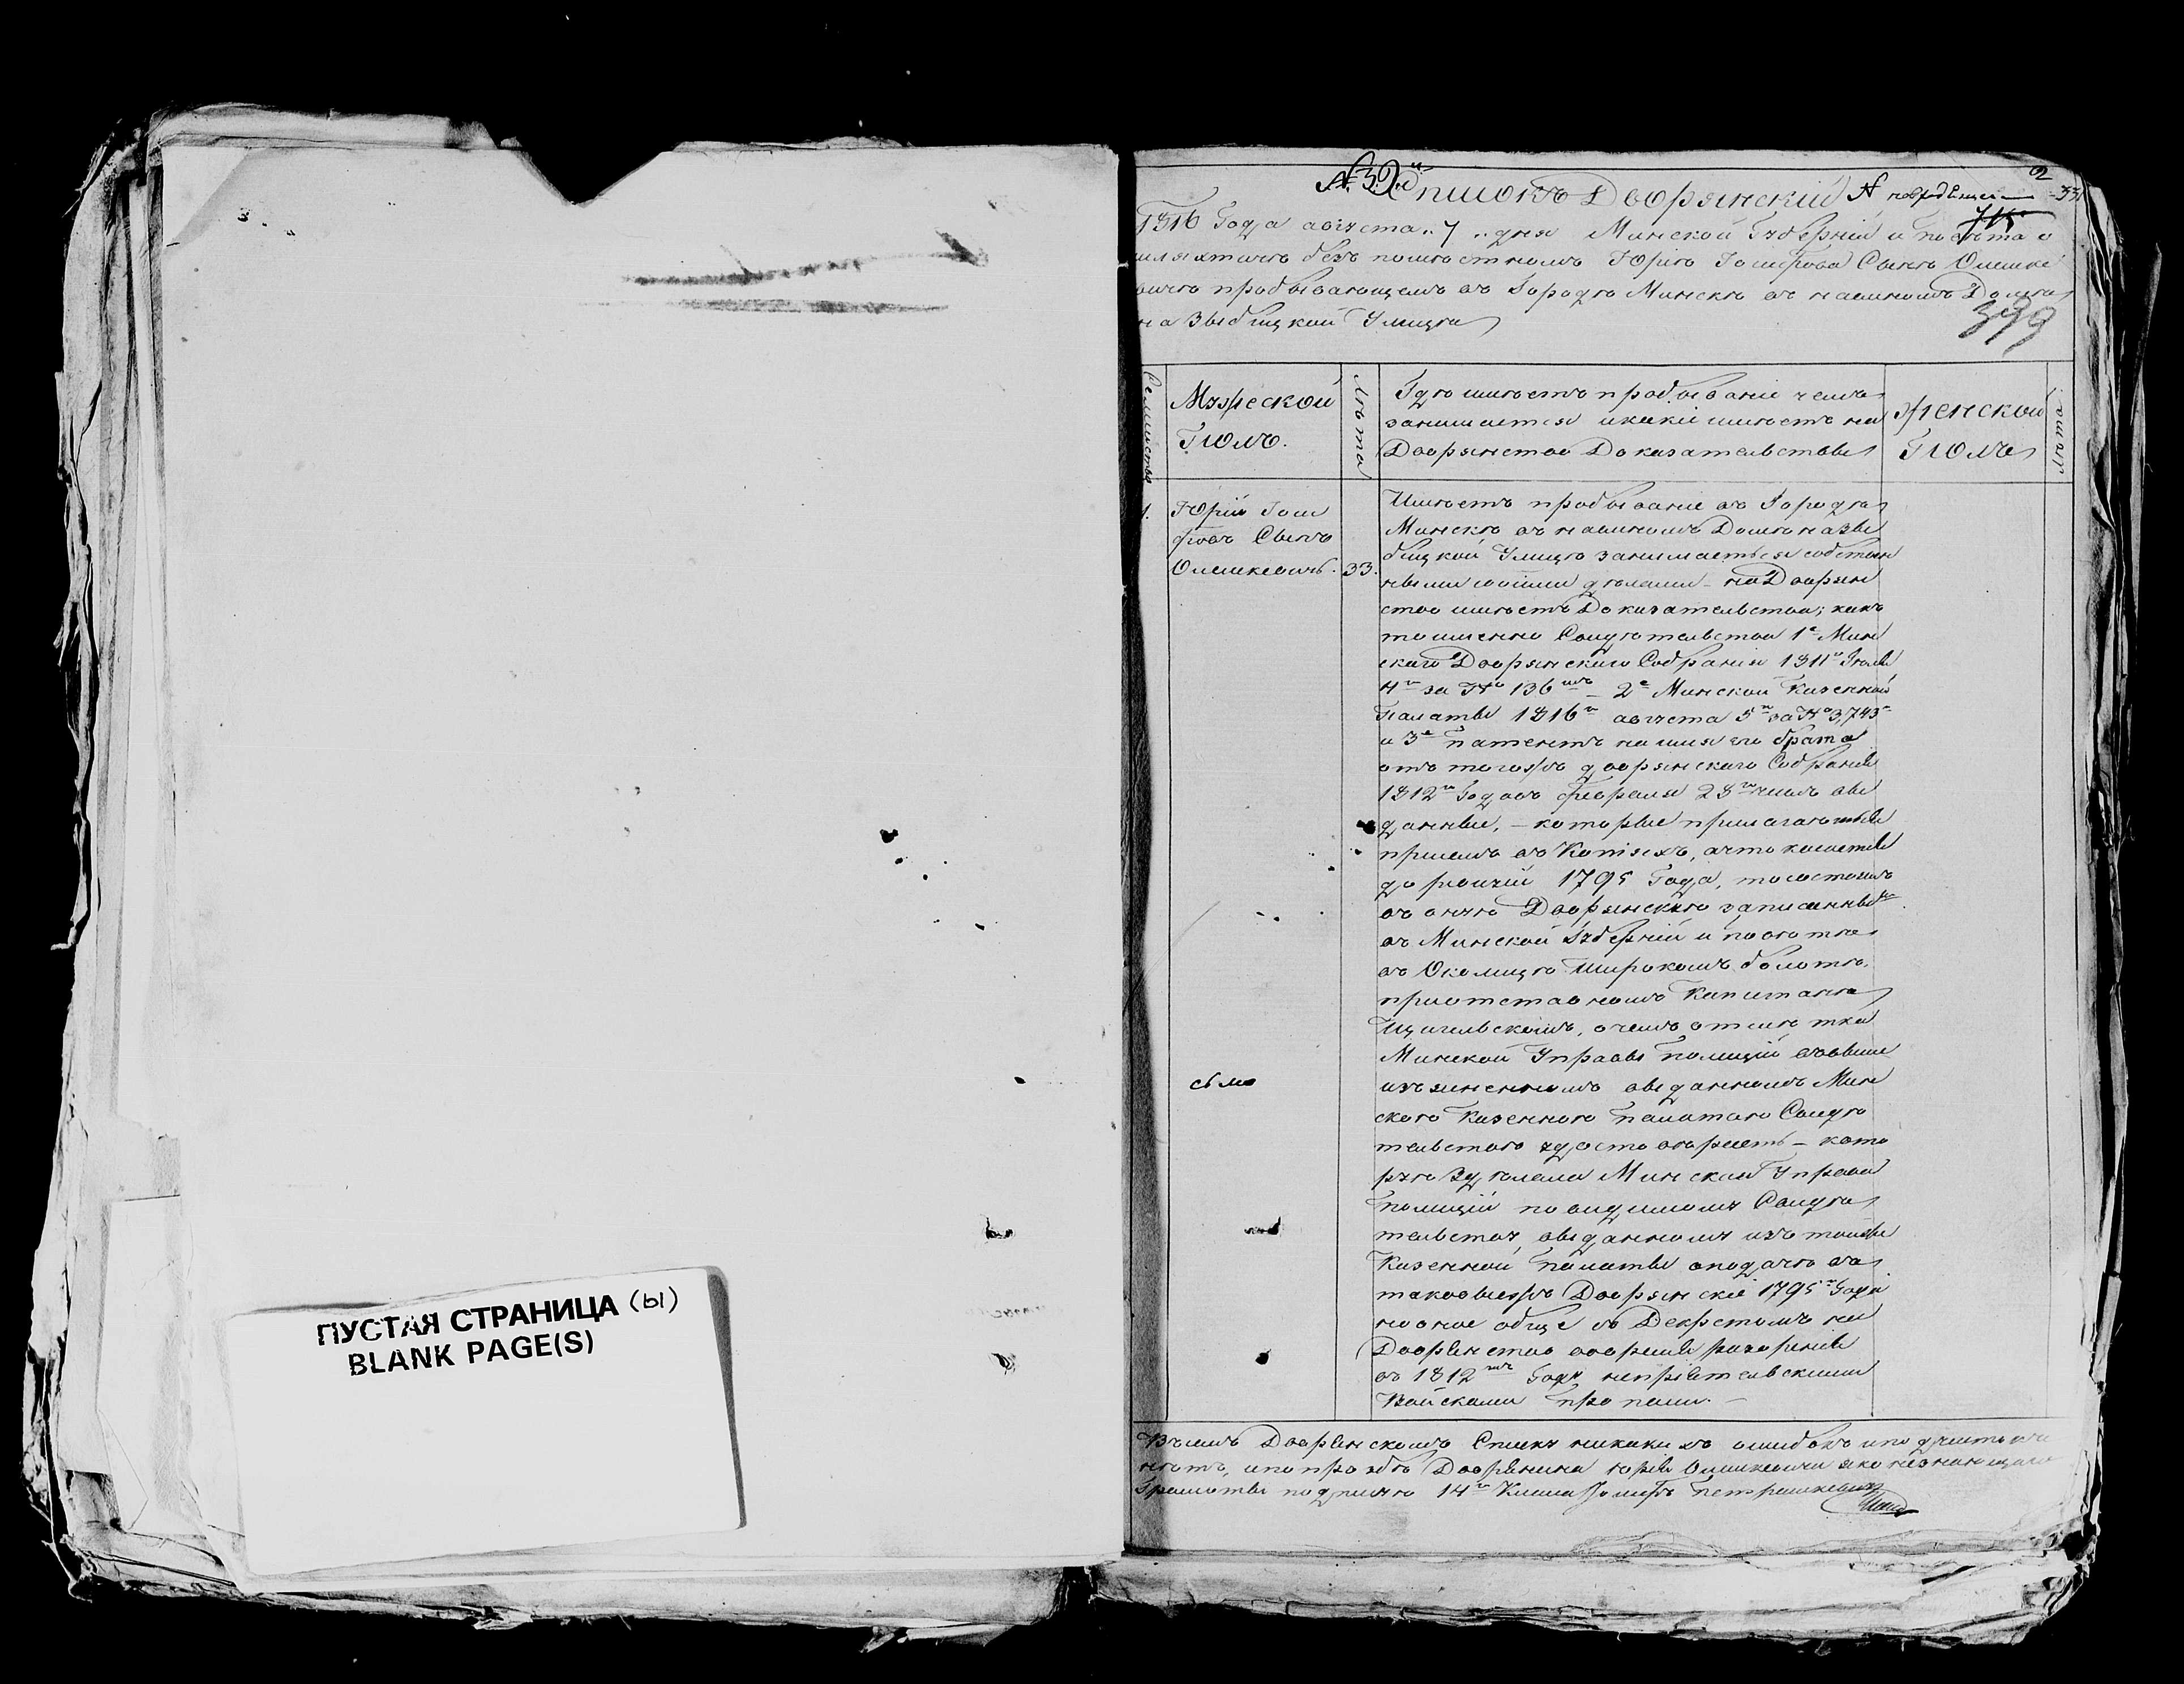 ПУСТАЯ СТРАНИЦА (ы)
BLANK PAGE(S)
2
Списокъ Дворянскій
715
1816 Года августа 7 дня Минской Губерніи и повѣта о
шляхтичѣ безъ помѣстномъ Юріѣ Іосифовѣ Сынѣ Олешке
вичѣ пробывающемъ въ Городѣ Минскѣ въ наемномъ Домѣ
на Збыцкой Улицѣ
399
Семейства
Мужеской
Полъ.
Лѣта
Гдѣ имѣетъ пробываніе чемъ
занимается и какіе имѣетъ на
Дворянство Доказательствы
Женской
Полъ
Лѣта
1.
Юрій Іоси
фовъ Сынъ
Олешкевичъ.
33.
Имѣетъ пробываніе въ Городѣ
Минскѣ въ наемномъ Домѣ на Збы
цкой Улицѣ занимаеться собствен
ными своими дѣлами - на Дворян
ство имѣетъ Доказательства; какъ
то именно Свидѣтельства 1е Мин
скаго Дворянскаго Собранія 1811го Іюля
4го за №о 136мъ - 2е Минской Казенной
Палаты 1816го августа 5го за №о 3,743
и 3е патентъ на имя его брата
отъ тогожъ дворянскаго Собранія
1812го Годовъ февраля 28го числъ вы
данные, - которые прилагаются
присемъ въ Копіяхъ, а что касается
до ревизіи 1795 Года, то состоитъ
въ оную Дворянскую записанный
въ Минской Губерніи и повѣтѣ
въ Околицѣ Широкомъ болотѣ,
при отставномъ Капитанѣ
о чемъ отмѣтка
Минской Управы Полиціи въ выше
изъясненномъ выданномъ Мин
скою Казенною Палатою Свидѣ
тельствѣ удостовѣряетъ - кото
рую здѣлала Минская Управа
Полиціи по видимому Свидѣ
тельству, выданному изъ тойже
Казенной Палаты о подачѣ въ
таковыежъ Дворянскіе 1795го Года
но оное обще съ Декретомъ на
Дворянство во время разоренія
въ 1812мъ Году непріятельскими
Войсками пропали. -
Въ семъ Дворянскомъ Списку никакихъ ошибокъ и подчистокъ
нѣтъ, и по прозбѣ Дворянина Юрія Олешкевича яко незнающаго
Грамоты подписую 14го Класа Іосифъ Петрашкевичъ